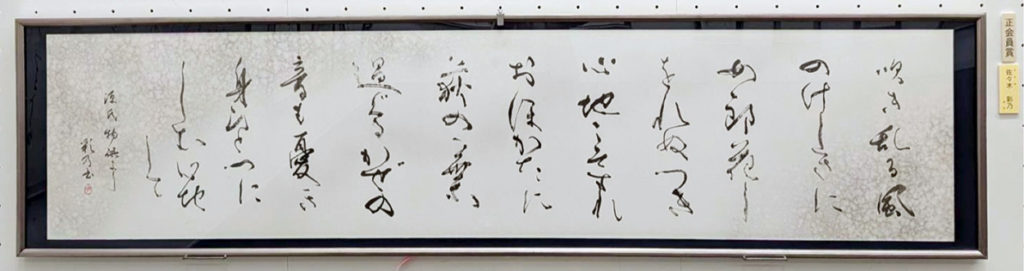 正会員賞
佐々木 彩乃
吹き乱る風
のけしきに
女郎花し
をれぬへき
心地こそすれ
おほかたに
荻の葉
過ぐるかぜの
音も憂き
身ひとつに
しむ心地
して
源氏物語より
彩乃書